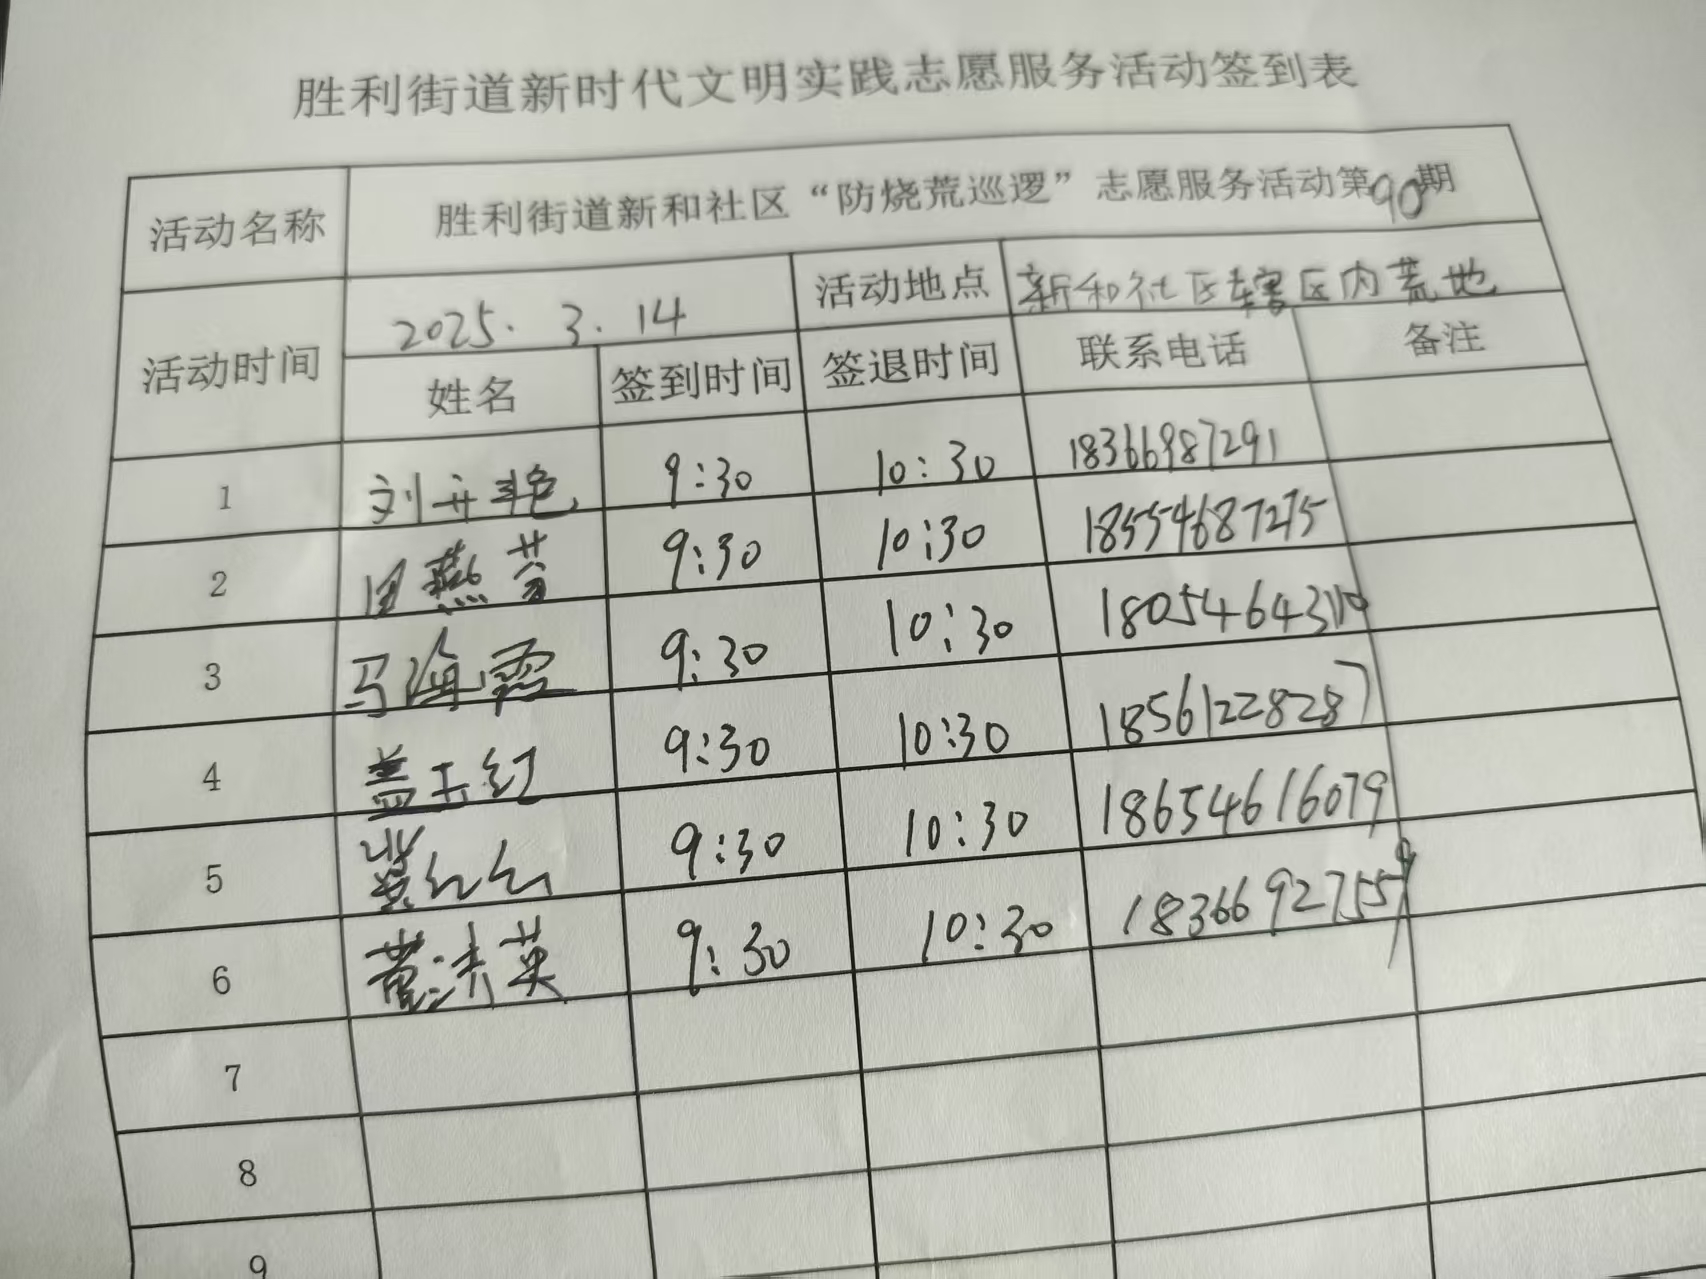 胜利街道新时代文明实践志愿服务活动签到表
活动名称 胜利街道新和社区“防烧荒巡逻”志愿服务活动第90期
活动时间 2025.3.14 活动地点 新和社区辖区内荒地
姓名 签到时间 签退时间 联系电话 备注
1 刘开艳 9:30 10:30 18366987291
2 田燕芬 9:30 10:30 18554687275
3 马海霞 9:30 10:30
4 盖玉红 9:30 10:30 18561228287
5 红红 9:30 10:30 18654616079
6 董洪英 9:30 10:30 18366927559
7
8
9